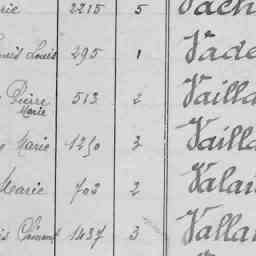 rie 2215 5 Vach
Louis 295 1 Vade
Pierre Marie 513 2 Vailla
Marie 1250 3 Vailla
Marie 702 2 Valai
Clément 1437 3 Valla